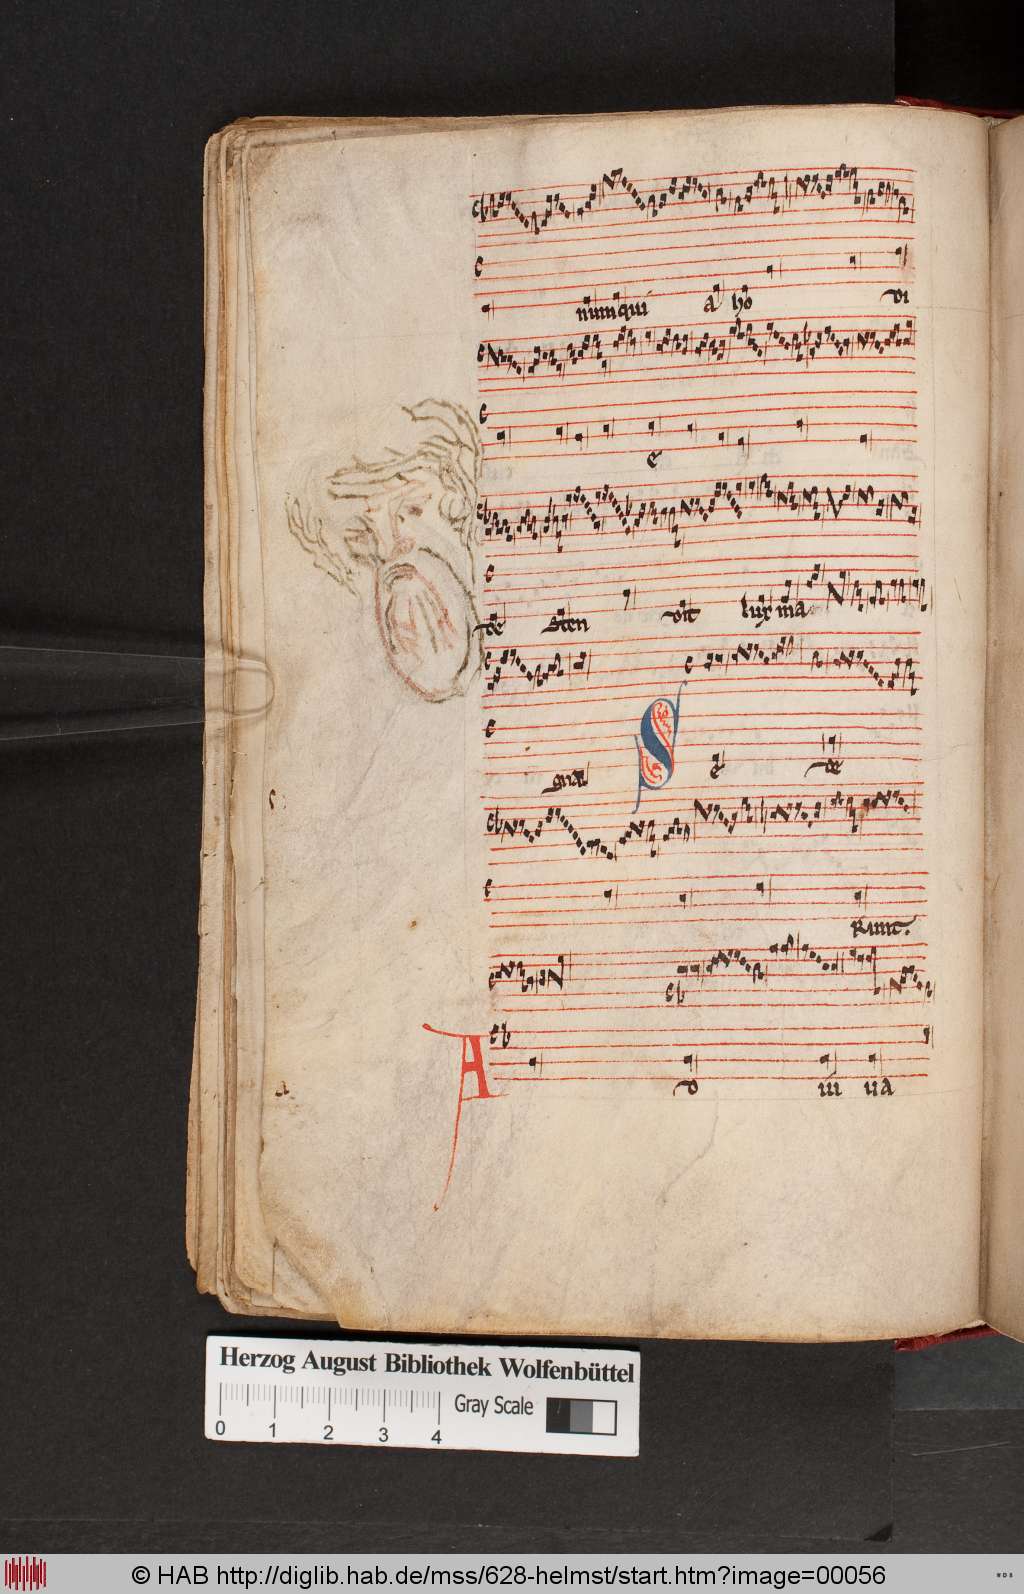 num qui a ho di
e
de scen dit lux ma
gna S e de
runt.
A d iu ua
Herzog August Bibliothek Wolfenbüttel
0 1 2 3 4 Gray Scale
© HAB http://diglib.hab.de/mss/628-helmst/start.htm?image=00056